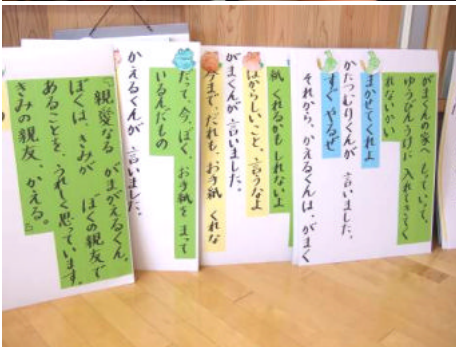 がまくんの家へもっていって、
ゆうびんうけに 入れてきてく
れないかい
まかせてくれよ
かたつむりくんが 言いました。
すぐ やるぜ
それから、かえるくんは、がまく
紙 くれるかも しれないよ
ばからしいこと、言うなよ
がまくんが 言いました。
今まで、だれも、お手紙 くれな
だって、今、ぼく、お手紙を まって
いるんだもの
かえるくんが 言いました。
『親愛なる がまがえるくん。
ぼくは、きみが ぼくの親友で
あることを、うれしく思っています。
きみの親友、かえる。』